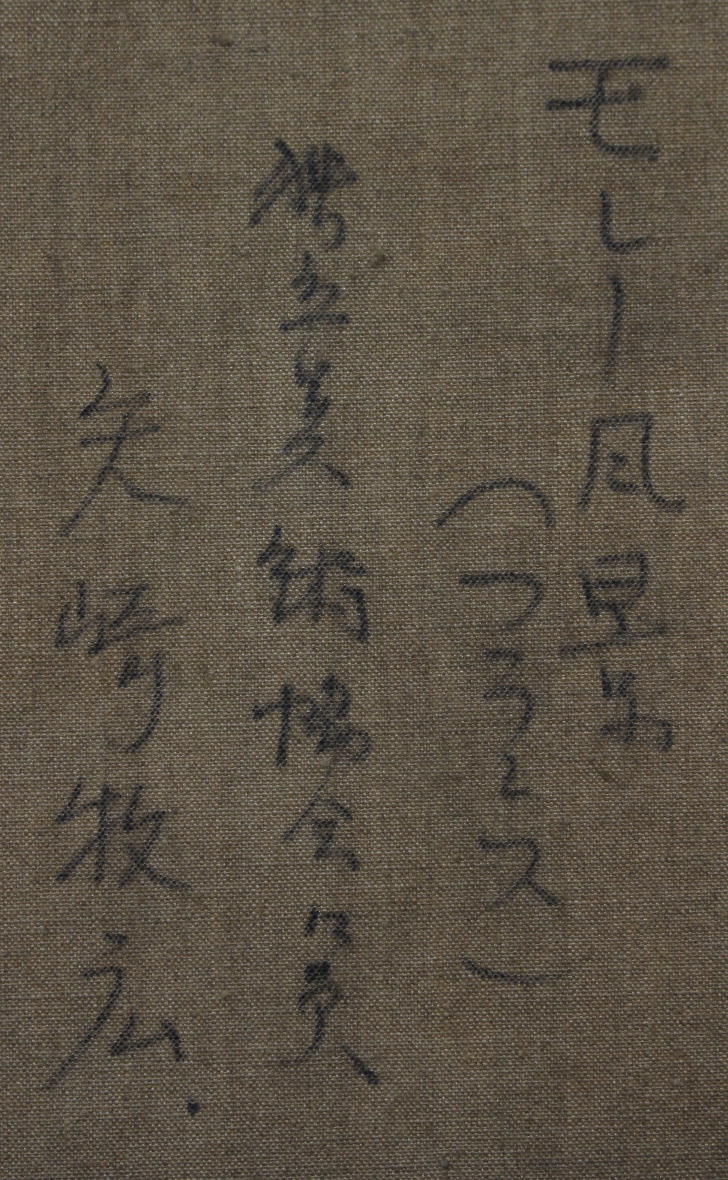 モレー風景
（フランス）
独立美術協会々員
矢崎牧広